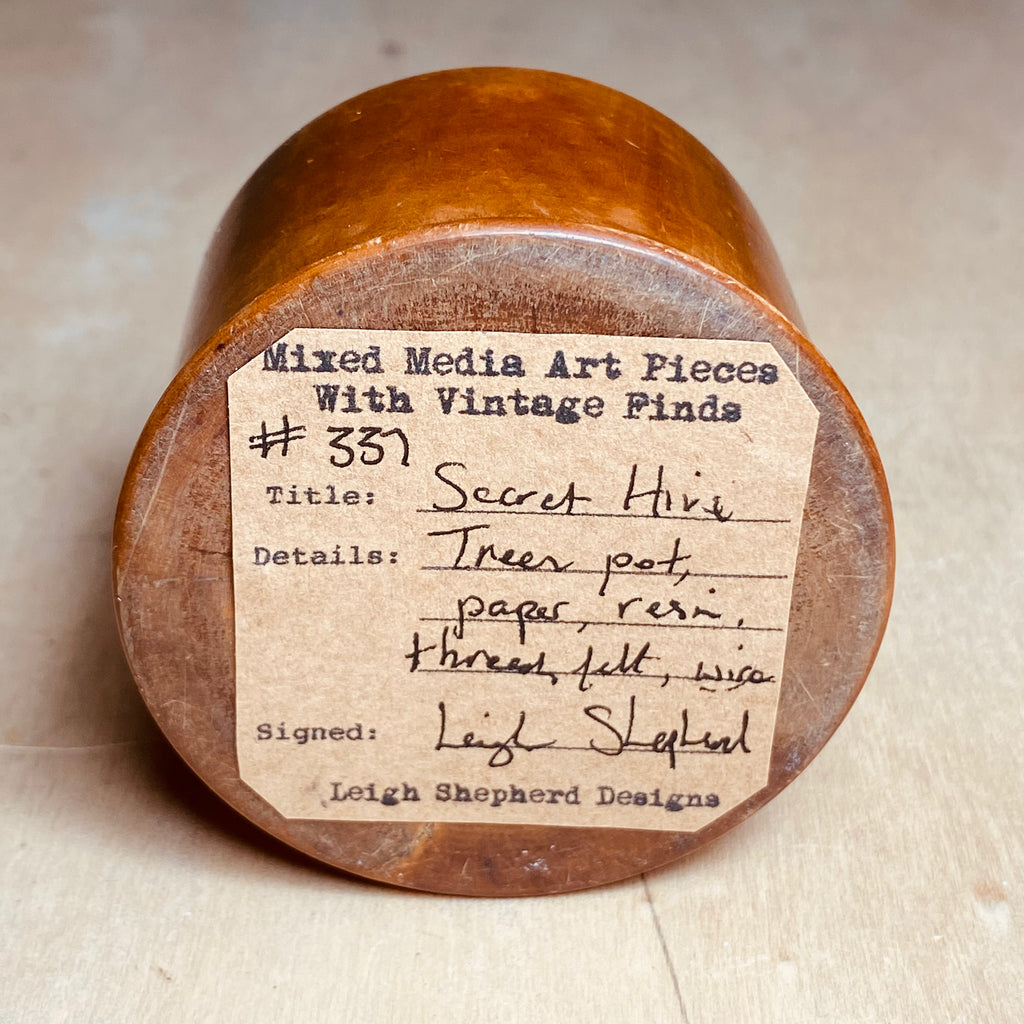 Mixed Media Art Pieces
With Vintage Finds
# 337
Title: Secret Hive
Details: Treen pot,
paper, resin,
thread, felt, wire
Signed: Leigh Shepherd
Leigh Shepherd Designs